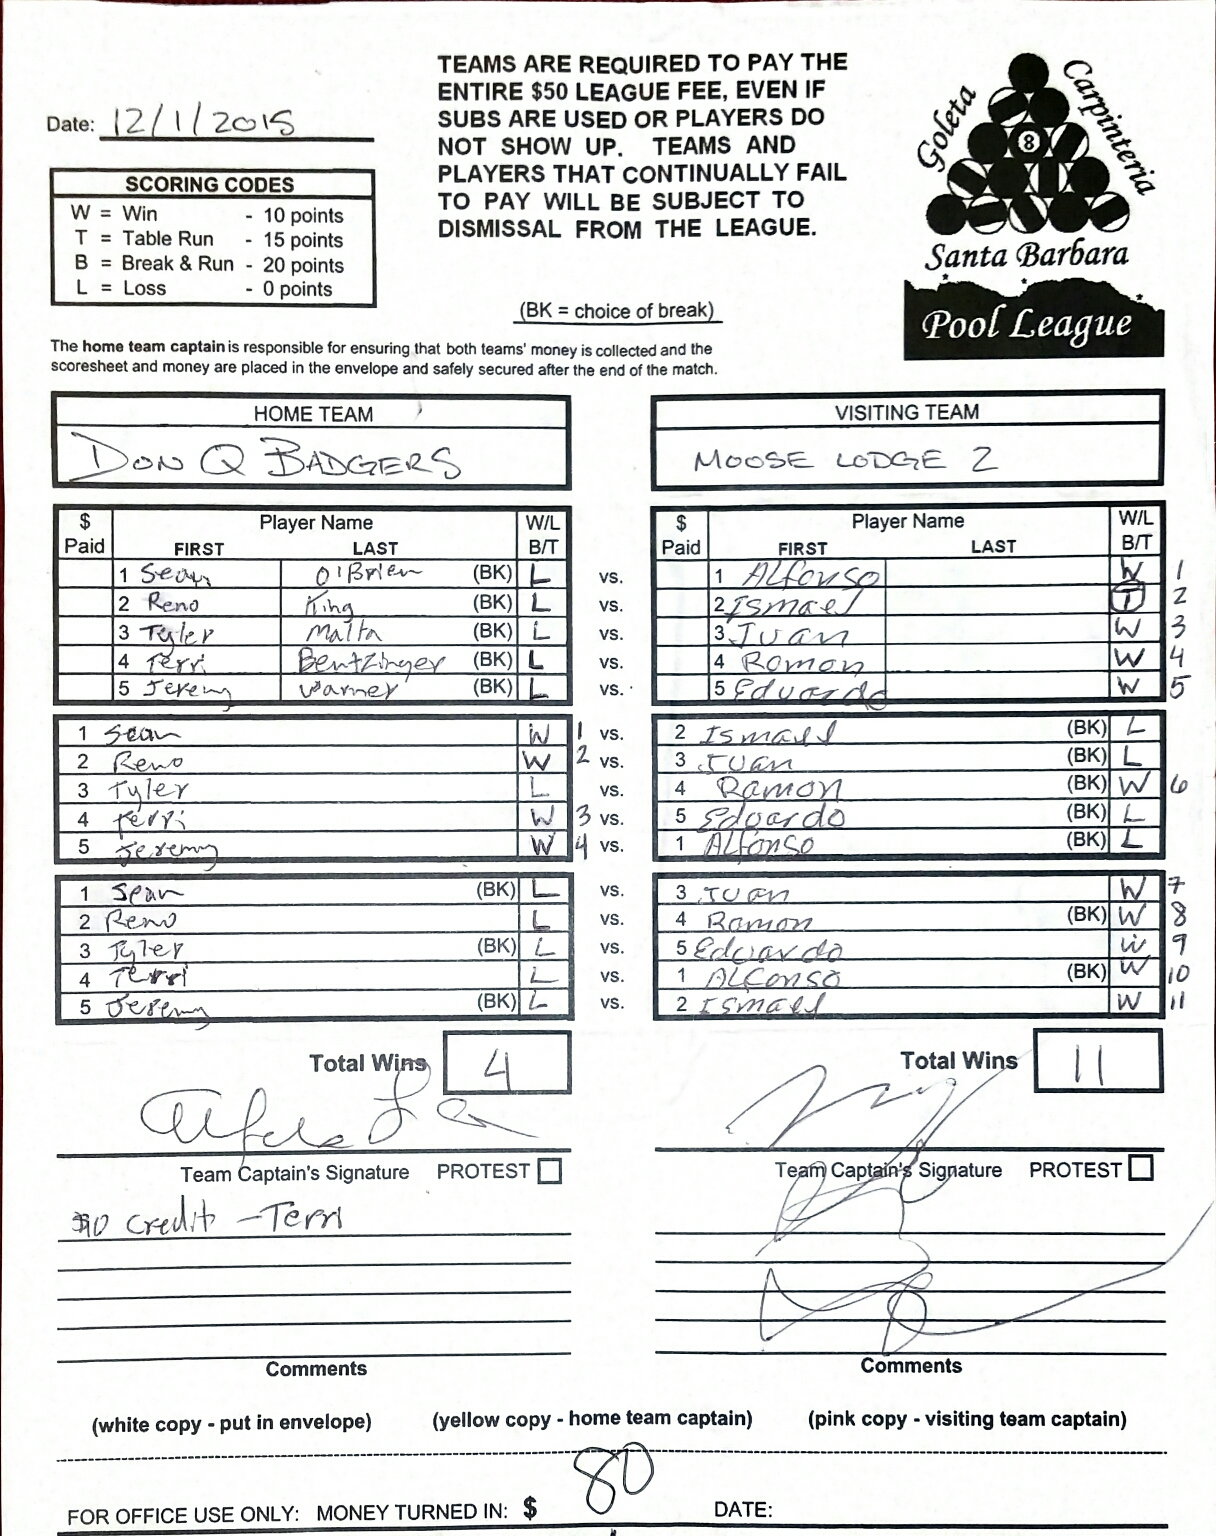 TEAMS ARE REQUIRED TO PAY THE
ENTIRE $50 LEAGUE FEE, EVEN IF
SUBS ARE USED OR PLAYERS DO
NOT SHOW UP. TEAMS AND
PLAYERS THAT CONTINUALLY FAIL
TO PAY WILL BE SUBJECT TO
DISMISSAL FROM THE LEAGUE.
Goleta
Carpinteria
8
Santa Barbara
Pool League
Date: 12/1/2015
SCORING CODES
W = Win - 10 points
T = Table Run - 15 points
B = Break & Run - 20 points
L = Loss - 0 points
(BK = choice of break)
The home team captain is responsible for ensuring that both teams' money is collected and the
scoresheet and money are placed in the envelope and safely secured after the end of the match.
HOME TEAM VISITING TEAM
DON Q BADGERS MOOSE LODGE 2
$ Player Name W/L $ Player Name W/L
Paid FIRST LAST B/T Paid FIRST LAST B/T
1 Sean O'Brien (BK) L vs. 1 Alfonso W 1
2 Reno King (BK) L vs. 2 Ismael T 2
3 Tyler Malta (BK) L vs. 3 Juan W 3
4 Terri Bentzinger (BK) L vs. 4 Romon W 4
5 Jeremy Warner (BK) L vs. 5 Eduardo W 5
1 Sean W 1 vs. 2 Ismael (BK) L
2 Reno W 2 vs. 3 Juan (BK) L
3 Tyler L vs. 4 Ramon (BK) W 6
4 Terri W 3 vs. 5 Eduardo (BK) L
5 Jeremy W 4 vs. 1 Alfonso (BK) L
1 Sean (BK) L vs. 3 Juan W 7
2 Reno L vs. 4 Ramon (BK) W 8
3 Tyler (BK) L vs. 5 Eduardo W 9
4 Terri L vs. 1 Alfonso (BK) W 10
5 Jeremy (BK) L vs. 2 Ismael W 11
Total Wins 4 Total Wins 11
Team Captain's Signature PROTEST Team Captain's Signature PROTEST
$10 credit - Terri
Comments Comments
(white copy - put in envelope) (yellow copy - home team captain) (pink copy - visiting team captain)
FOR OFFICE USE ONLY: MONEY TURNED IN: $ 80 DATE: